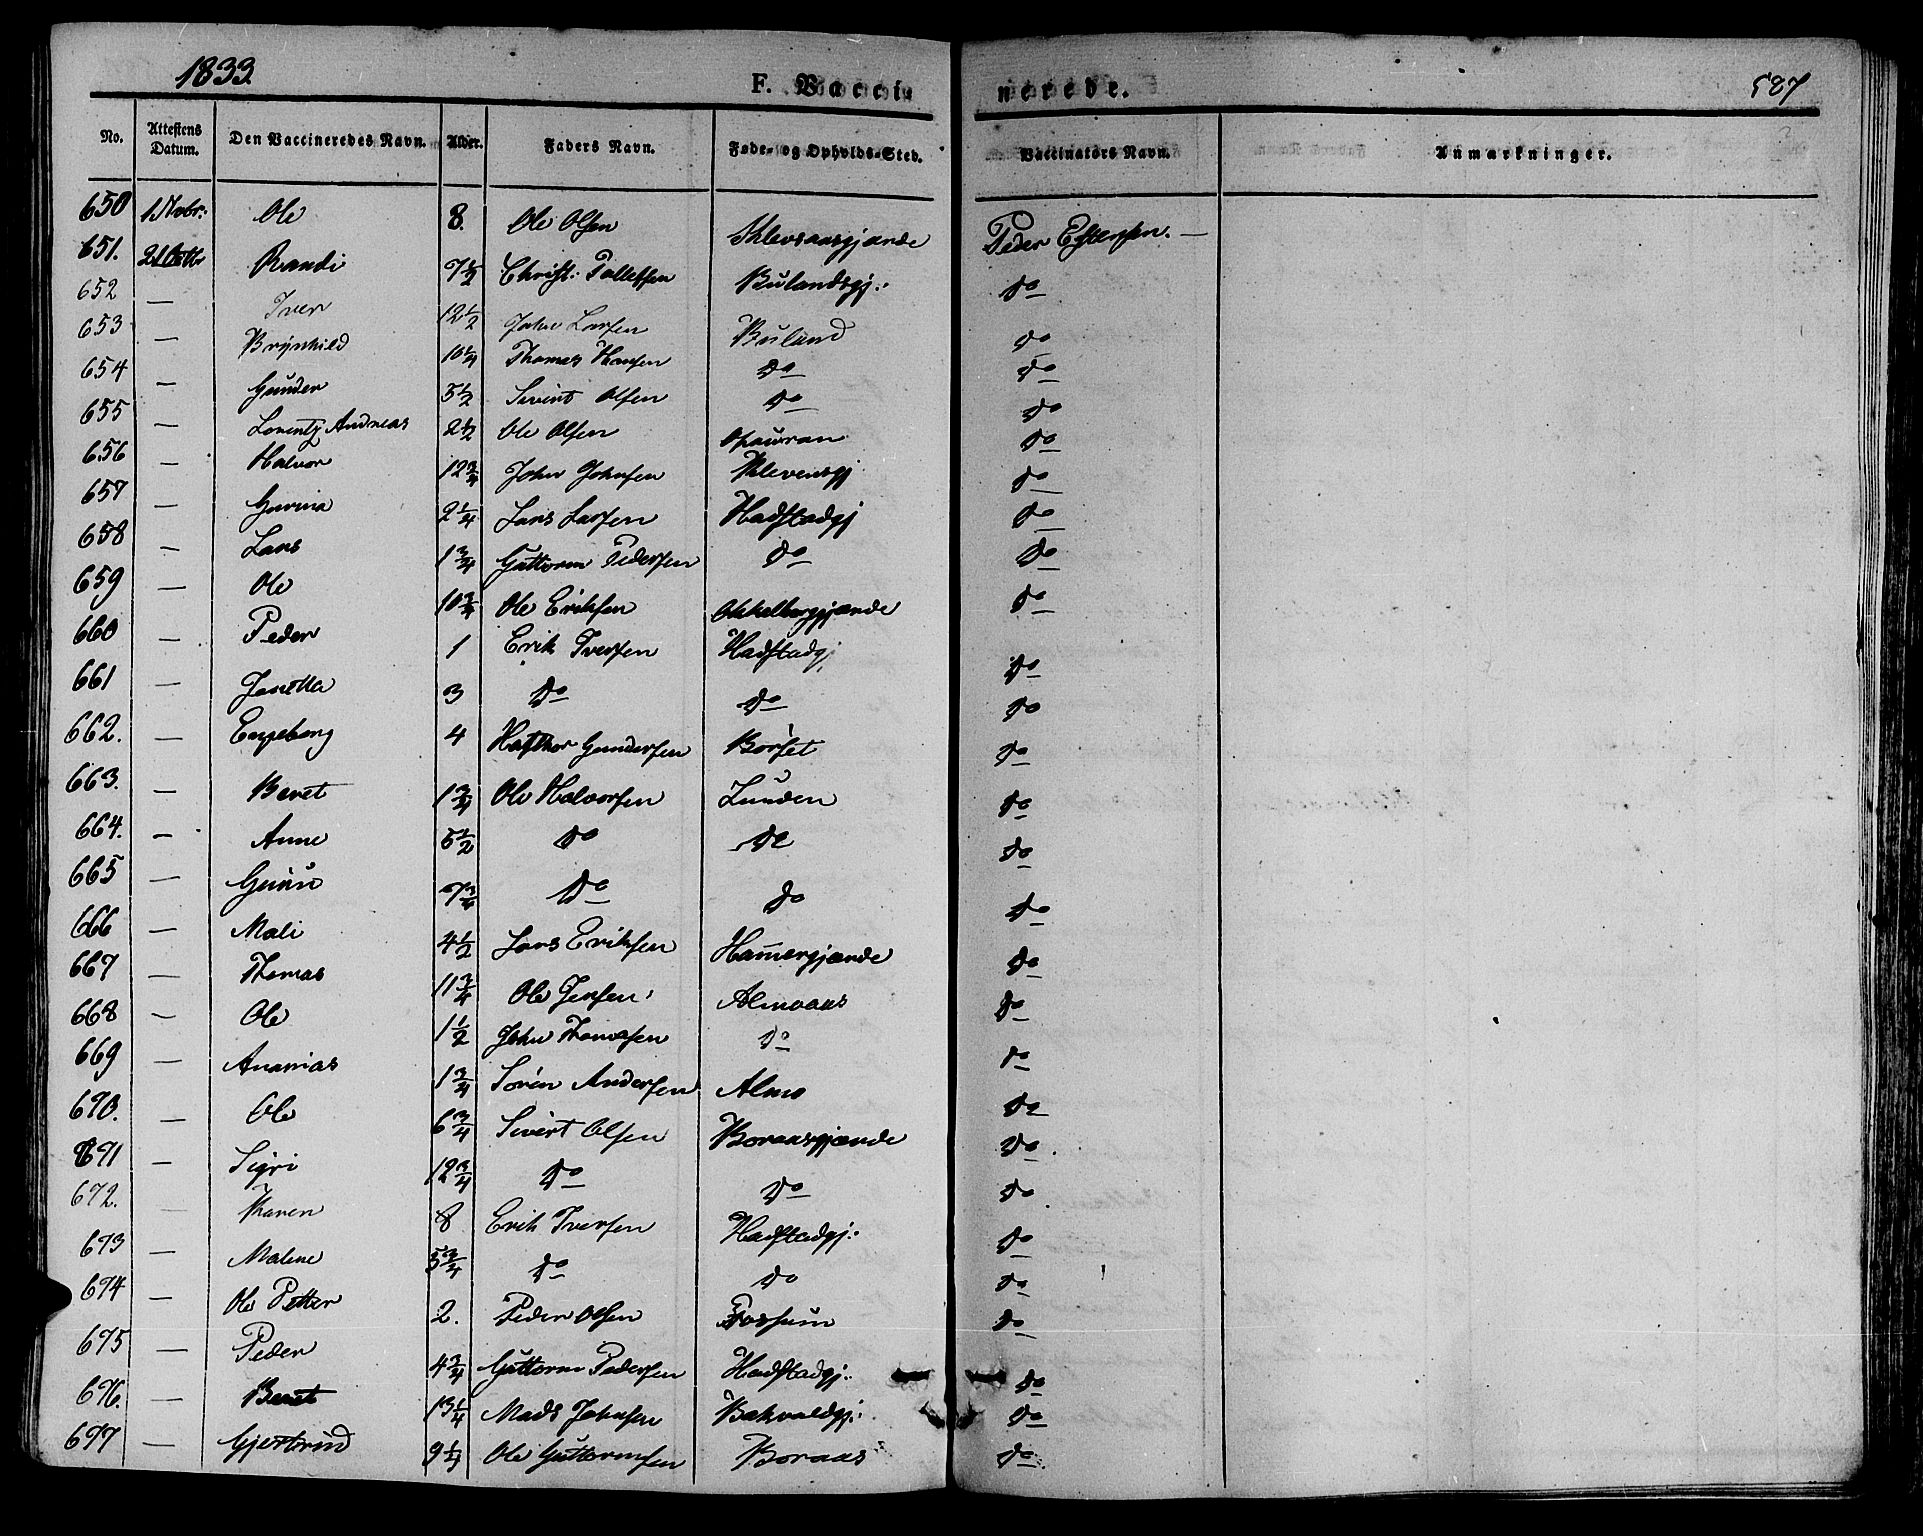 1833. F. Vaccinerede. 587
No. Attestens Datum. Den Vaccineredes Navn. Alder. Faders Navn. Føde- og Opholds-Sted. Vaccinators Navn. Anmærkninger.
650 1 Nvbr: Ole 8. Ole Olsen Peder Estensen. —
651. 21 Octbr Randi 7½ Christ: Tollefsen Bulandsgj: do
652 — Iver 12½ John Larsen Buland do
653 — Brynhild 10¼ Thomas Hansen do do
654 — Gunder 5½ Sivert Olsen do do
655 — Lorentz Andreas 2½ Ole Olsen do
656 — Halvor 12¾ John Johnsen Klevensgj do
657 — Gurina 2¼ Lars Larsen Hadstadgj do
658 — Lars 1¾ Guttorm Pedersen do do
659 — Ole 10¾ Ole Eriksen do
660 — Peder 1 Erik Iversen Hadstadgj do
661 — Jonetta 3 do do do
662. — Engeborg 4 Gundersen Börset do
663. — Beret 1¾ Ole Halvorsen Lunden do
664. — Anne 5½ do do do
665 — Guru 7¾ do do do
666 — Mali 4½ Lars Eriksen Hamergjærde do
667 — Thomas 11¾ Ole Jensen Almoaas do
668 — Ole 1½ John Thomasen do do
669 — Ananias 1¾ Sören Andersen Almo do
670. — Ole 6¾ Sivert Olsen Boraasgjærde do
671 — Sigri 12¾ do do do
672. — Karen 8 Erik Iversen Hadstadgj: do
673 — Malene 5¾ do do do
674 — Ole Petter 2. Peder Olsen Forsum do
675 — Peder 4¾ Guttorm Pedersen Hadstadgj: do
676. — Beret 13¼ Mads Johnsen Bakvoldgj: do
677 — Gjertrud 9¼ Ole Guttormsen Boraas do